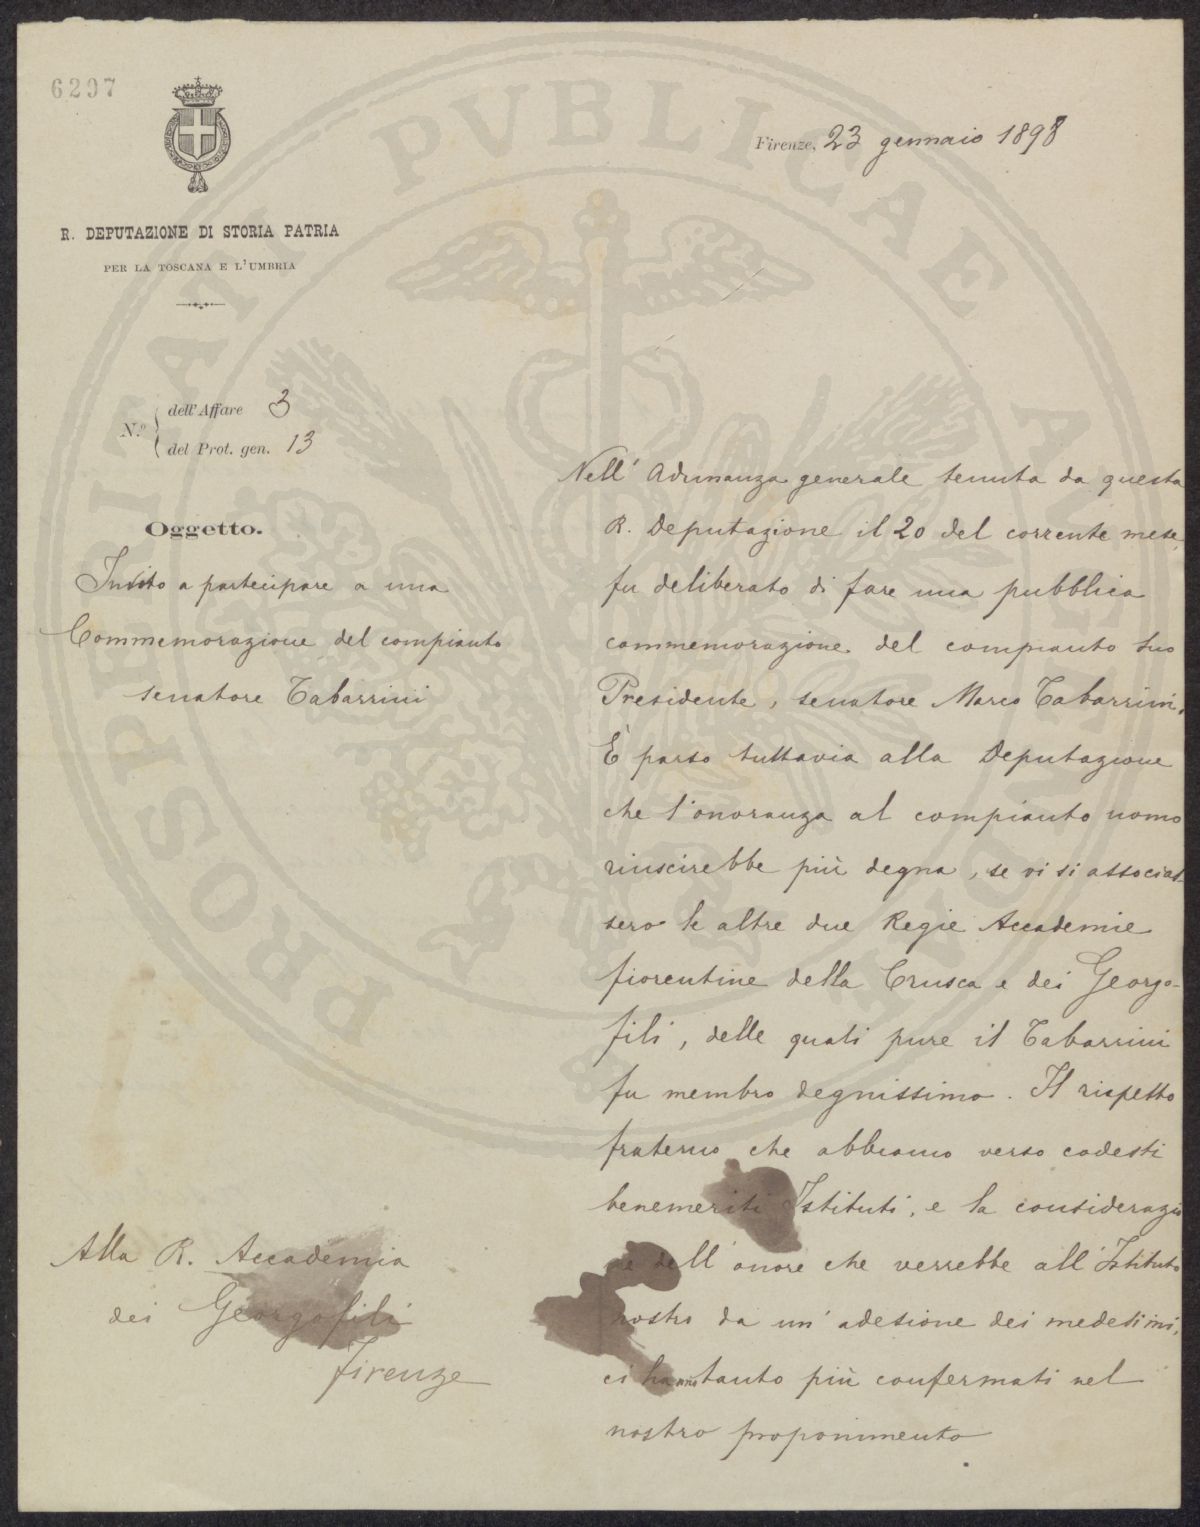 6297
Firenze, 23 gennaio 1898
R. DEPUTAZIONE DI STORIA PATRIA
PER LA TOSCANA E L'UMBRIA
N.º
dell'Affare 3
del Prot. gen. 13
Oggetto.
Invito a partecipare a una
Commemorazione del compianto
senatore Tabarrini
Nell' Adunanza generale tenuta da questa
R. Deputazione il 20 del corrente mese,
fu deliberato di fare una pubblica
commemorazione del compianto suo
Presidente, senatore Marco Tabarrini.
È parso tuttavia alla Deputazione
che l'onoranza al compianto uomo
riuscirebbe più degna, se vi si associas-
sero le altre due Regie Accademie
fiorentine della Crusca e dei Georgo-
fili, delle quali pure il Tabarrini
fu membro degnissimo. Il rispetto
fraterno che abbiamo verso codesti
benemeriti Istituti, e la considerazio
ne dell' onore che verrebbe all' Istituto
nostro da un' adesione dei medesimi,
ci hanno tanto più confermati nel
nostro proponimento
Alla R. Accademia
dei Georgofili
Firenze
PROSPERITATI PUBLICAE AUGENDAE